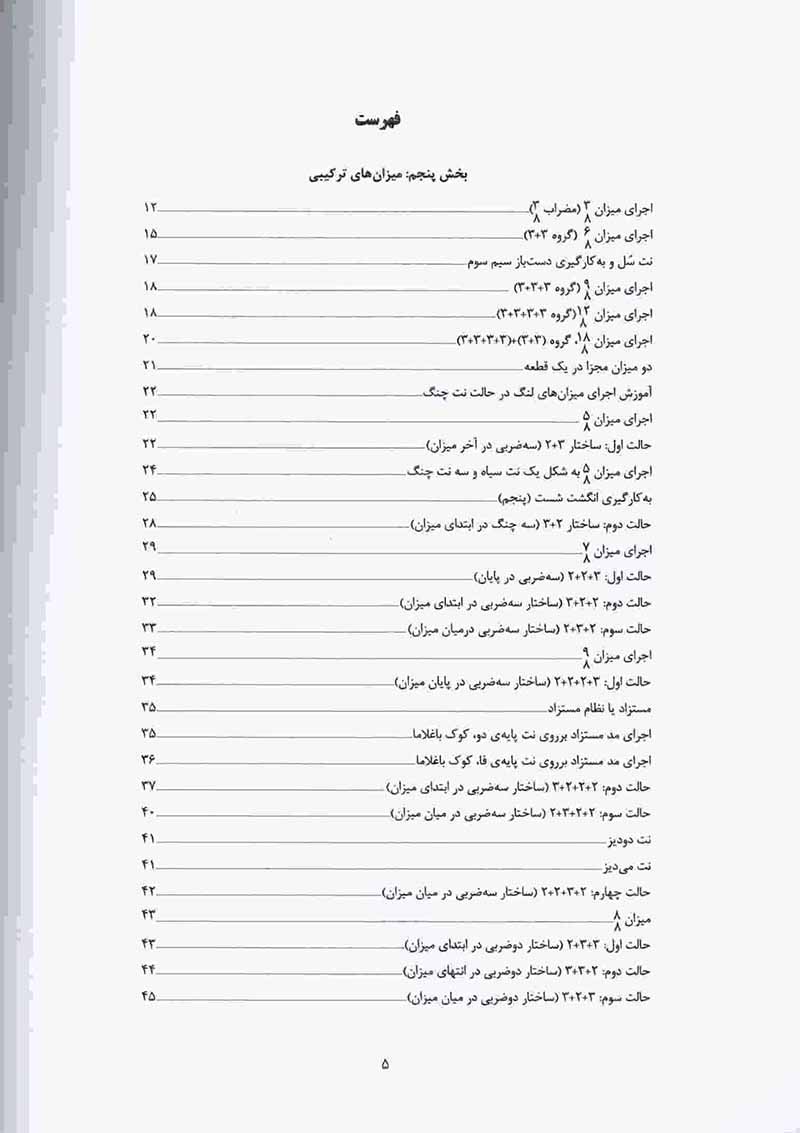 فهرست
بخش پنجم: میزان‌های ترکیبی
اجرای میزان ۳/۸ (مضراب ۳/۸) ۱۲
اجرای میزان ۶/۸ (گروه ۳+۳) ۱۵
نت سُل و به‌کارگیری دست‌باز سیم سوم ۱۷
اجرای میزان ۹/۸ (گروه ۳+۳+۳) ۱۸
اجرای میزان ۱۲/۸ (گروه ۳+۳+۳+۳) ۱۸
اجرای میزان ۱۸/۸، گروه (۳+۳)+(۳+۳+۳+۳) ۲۰
دو میزان مجزا در یک قطعه ۲۱
آموزش اجرای میزان‌های لنگ در حالت نت چنگ ۲۲
اجرای میزان ۵/۸ ۲۲
حالت اول: ساختار ۳+۲ (سه‌ضربی در آخر میزان) ۲۲
اجرای میزان ۵/۸ به شکل یک نت سیاه و سه نت چنگ ۲۴
به‌کارگیری انگشت شست (پنجم) ۲۵
حالت دوم: ساختار ۲+۳ (سه چنگ در ابتدای میزان) ۲۸
اجرای میزان ۷/۸ ۲۹
حالت اول: ۳+۲+۲ (سه‌ضربی در پایان) ۲۹
حالت دوم: ۲+۲+۳ (ساختار سه‌ضربی در ابتدای میزان) ۳۲
حالت سوم: ۲+۳+۲ (ساختار سه‌ضربی درمیان میزان) ۳۳
اجرای میزان ۹/۸ ۳۴
حالت اول: ۳+۲+۲+۲ (ساختار سه‌ضربی در پایان میزان) ۳۴
مستزاد یا نظام مستزاد ۳۵
اجرای مد مستزاد برروی نت پایه‌ی دو، کوک باغلاما ۳۵
اجرای مد مستزاد برروی نت پایه‌ی فا، کوک باغلاما ۳۶
حالت دوم: ۲+۲+۲+۳ (ساختار سه‌ضربی در ابتدای میزان) ۳۷
حالت سوم: ۲+۲+۳+۲ (ساختار سه‌ضربی در میان میزان) ۴۰
نت دودیز ۴۱
نت می‌دیز ۴۱
حالت چهارم: ۲+۳+۲+۲ (ساختار سه‌ضربی در میان میزان) ۴۲
میزان ۸/۸ ۴۳
حالت اول: ۳+۳+۲ (ساختار دوضربی در ابتدای میزان) ۴۳
حالت دوم: ۲+۳+۳ (ساختار دوضربی در انتهای میزان) ۴۴
حالت سوم: ۳+۲+۳ (ساختار دوضربی در میان میزان) ۴۵
۵